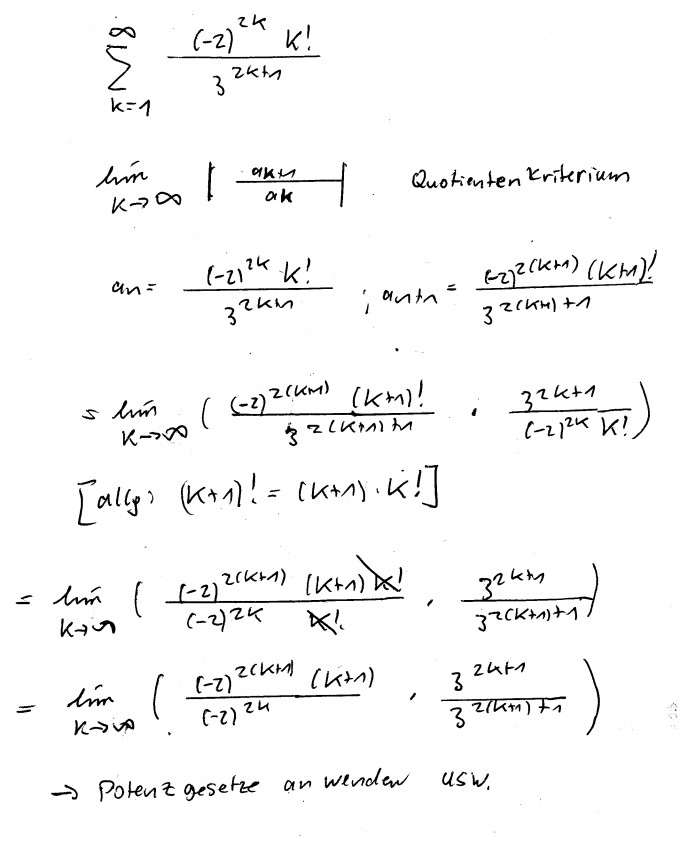 ∞
∑ (-2)^{2k} k! / 3^{2k+1}
k=1
lim k→∞ | ak+1 / ak | Quotienten Kriterium
an = (-2)^{2k} k! / 3^{2k+1} ; an+1 = (-2)^{2(k+1)} (k+1)! / 3^{2(k+1)+1}
= lim k→∞ ( (-2)^{2(k+1)} (k+1)! / 3^{2(k+1)+1} · 3^{2k+1} / (-2)^{2k} k! )
[allg: (k+1)! = (k+1) · k!]
= lim k→∞ ( (-2)^{2(k+1)} (k+1) k! / (-2)^{2k} k! · 3^{2k+1} / 3^{2(k+1)+1} )
= lim k→∞ ( (-2)^{2(k+1)} (k+1) / (-2)^{2k} · 3^{2k+1} / 3^{2(k+1)+1} )
→ Potenzgesetze anwenden usw.